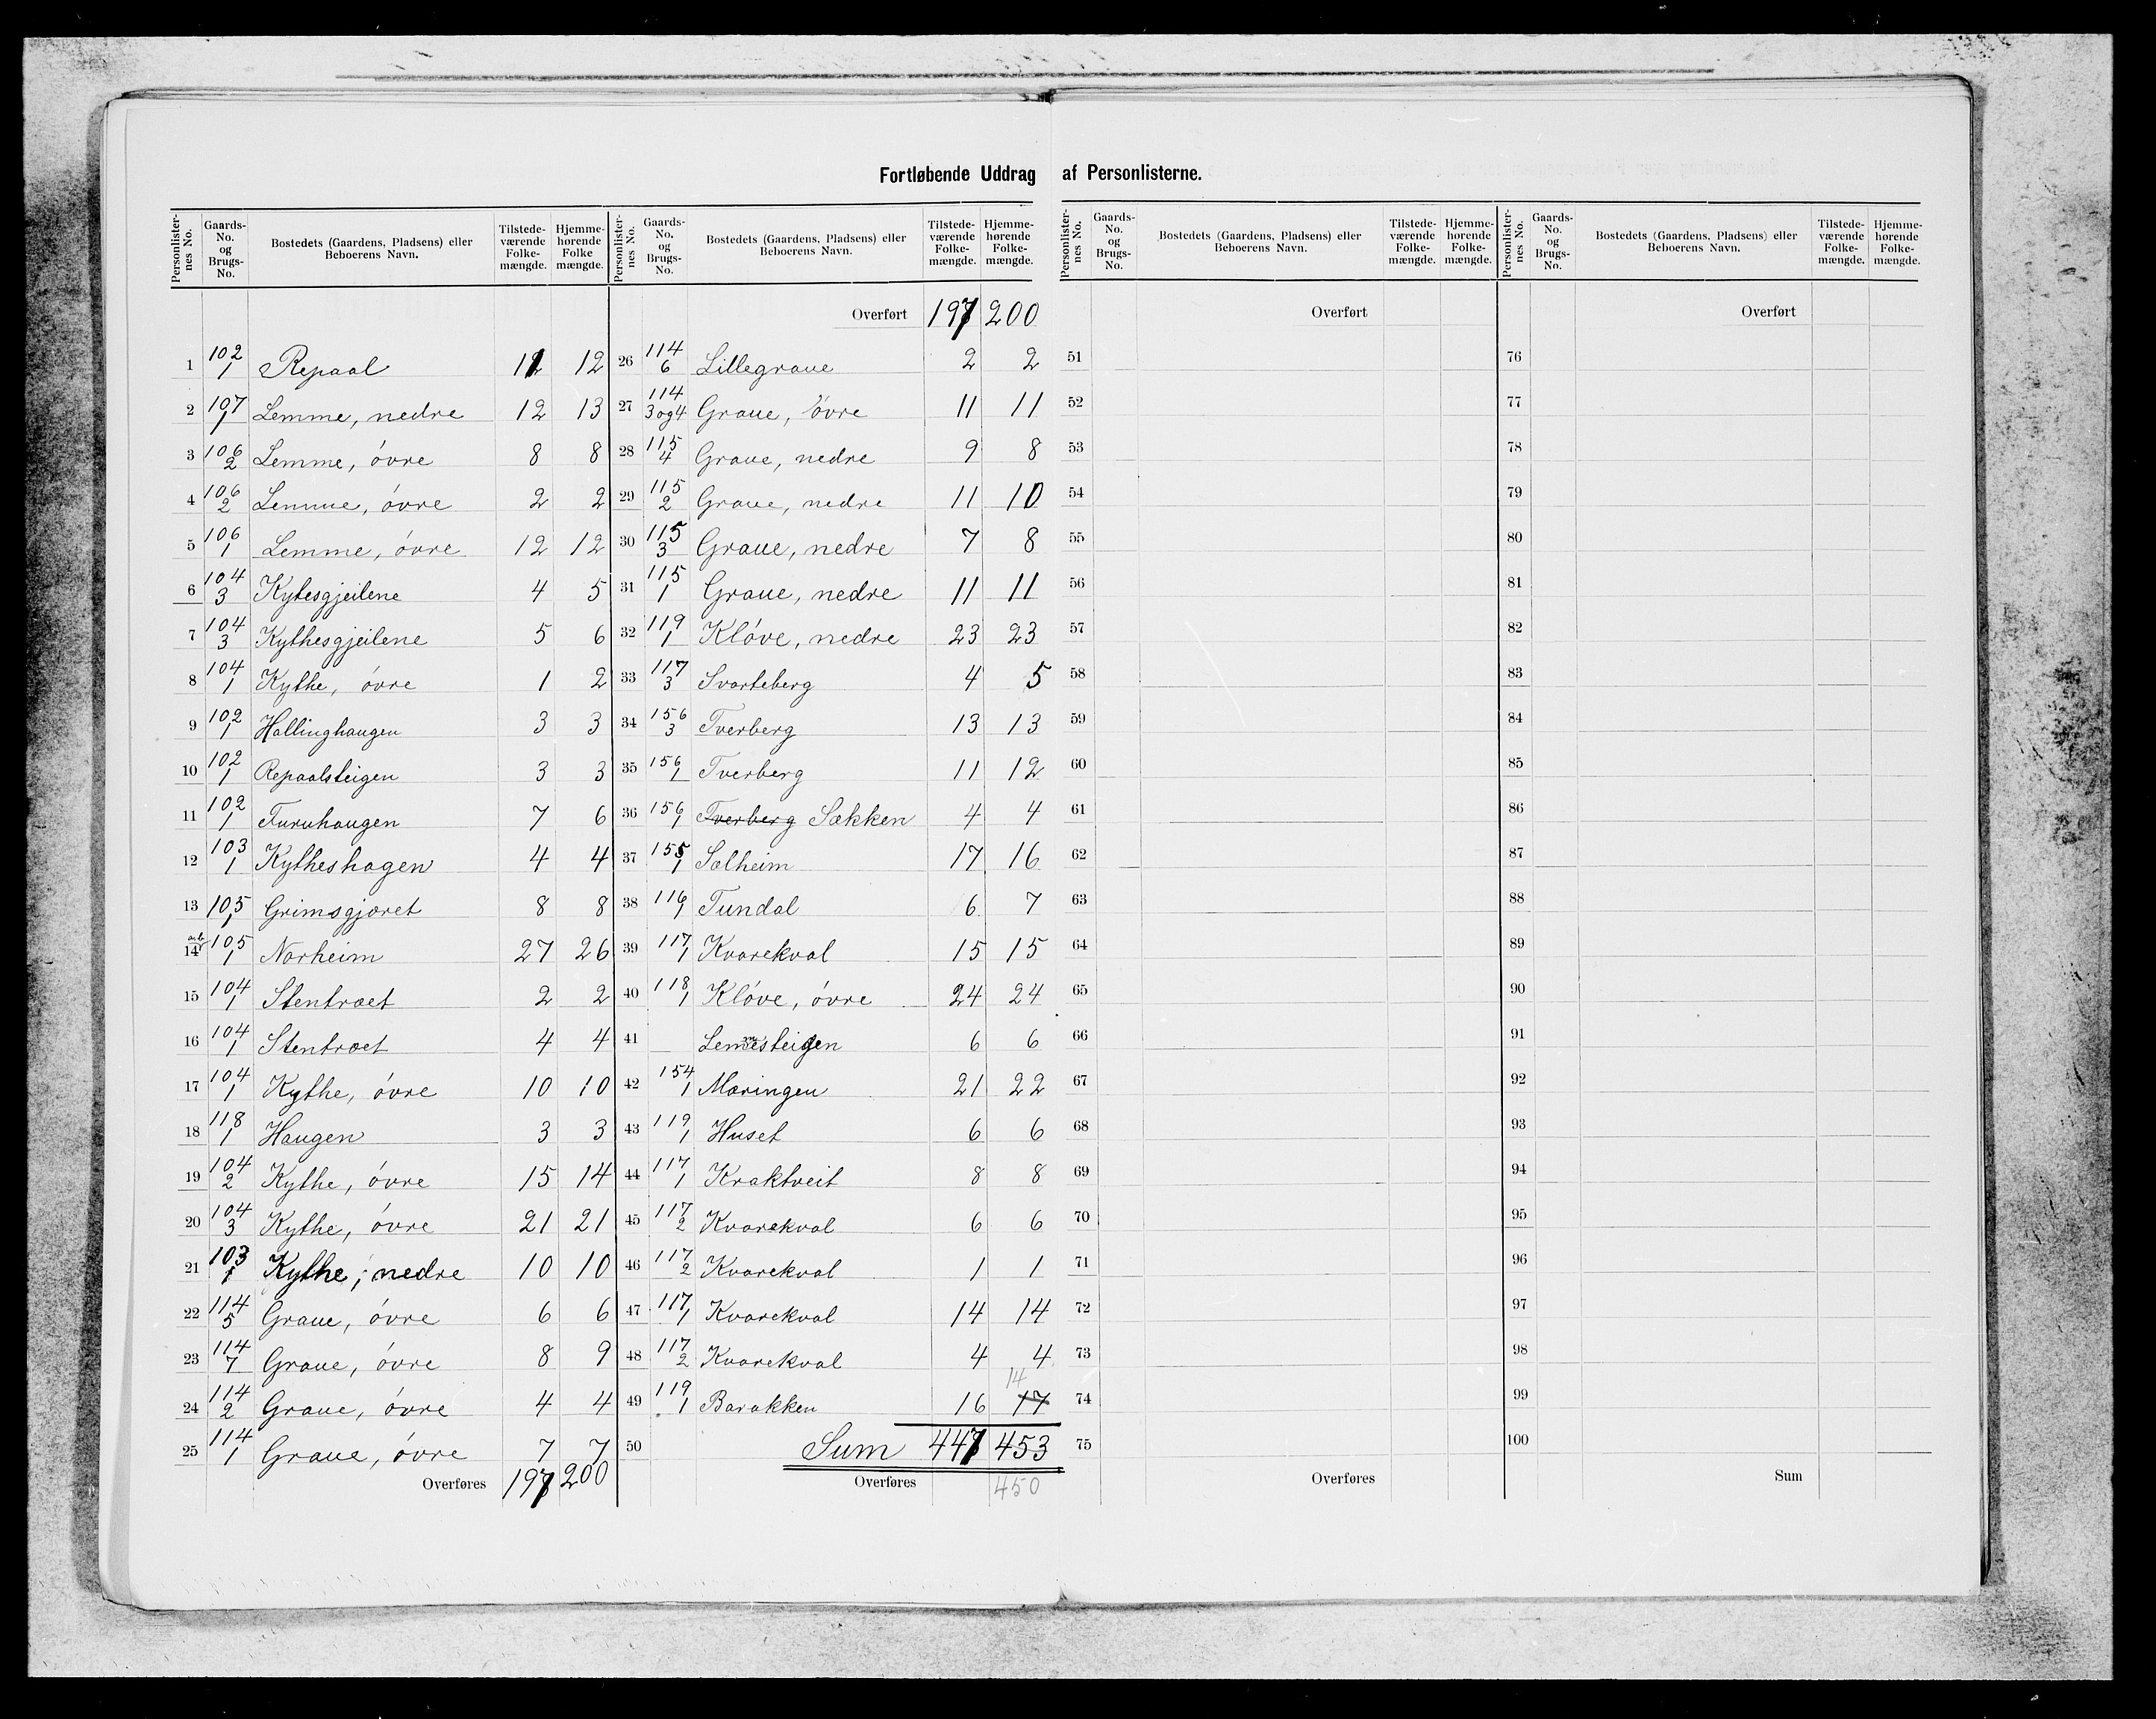 Fortløbende Uddrag af Personlisterne.
Personlisternes No. | Gaards-No. og Brugs-No. | Bostedets (Gaardens, Pladsens) eller Beboerens Navn. | Tilstedeværende Folkemængde. | Hjemmehørende Folkemængde.
1 102/1 Repaal 11 12
2 107/1 Lemme, nedre 12 13
3 106/2 Lemme, óvre 8 8
4 106/2 Lemme, óvre 2 2
5 106/1 Lemme, óvre 12 12
6 104/3 Kytesgjeilene 4 5
7 104/3 Kythesgjeilene 5 6
8 104/1 Kythe, óvre 1 2
9 102/1 Hallinghaugen 3 3
10 102/1 Repaalsteigen 3 3
11 102/1 Furuhaugen 7 6
12 103/1 Kytheshagen 4 4
13 105/1 Grimsgjæret 8 8
14 a.b. 105/1 Norheim 27 26
15 104/1 Stentræet 2 2
16 104/1 Stentræet 4 4
17 104/1 Kythe, óvre 10 10
18 118/1 Haugen 3 3
19 104/2 Kythe, óvre 15 14
20 104/3 Kythe, óvre 21 21
21 103/1 Kythe, nedre 10 10
22 114/5 Graue, óvre 6 6
23 114/7 Graue, óvre 8 9
24 114/2 Graue, óvre 4 4
25 114/1 Graue, óvre 7 7
Overføres 197 200
Personlisternes No. | Gaards-No. og Brugs-No. | Bostedets (Gaardens, Pladsens) eller Beboerens Navn. | Tilstedeværende Folkemængde. | Hjemmehørende Folkemængde.
Overført 197 200
26 114/6 Lillegraue 2 2
27 114/3 og 4 Graue, óvre 11 11
28 115/4 Graue, nedre 9 8
29 115/2 Graue, nedre 11 10
30 115/3 Graue, nedre 7 8
31 115/1 Graue, nedre 11 11
32 119/1 Klóve, nedre 23 23
33 117/3 Svarteberg 4 5
34 156/3 Tverberg 13 13
35 156/1 Tverberg 11 12
36 156/1 Tverberg Sækken 4 4
37 155/1 Sælheim 17 16
38 116/1 Tundal 6 7
39 117/1 Kvarekval 15 15
40 118/1 Klóve, óvre 24 24
41 Lemmesteigen 6 6
42 154/1 Mæringen 21 22
43 119/1 Huset 6 6
44 117/1 Kraktveit 8 8
45 117/2 Kvarekval 6 6
46 117/2 Kvarekval 1 1
47 117/1 Kvarekval 14 14
48 117/2 Kvarekval 4 4
14
49 119/1 Barakken 16 17
50 Sum 447 453
Overføres 450
Personlisternes No. | Gaards-No. og Brugs-No. | Bostedets (Gaardens, Pladsens) eller Beboerens Navn. | Tilstedeværende Folkemængde. | Hjemmehørende Folkemængde.
Overført
51
52
53
54
55
56
57
58
59
60
61
62
63
64
65
66
67
68
69
70
71
72
73
74
75
Overføres
Personlisternes No. | Gaards-No. og Brugs-No. | Bostedets (Gaardens, Pladsens) eller Beboerens Navn. | Tilstedeværende Folkemængde. | Hjemmehørende Folkemængde.
Overført
76
77
78
79
80
81
82
83
84
85
86
87
88
89
90
91
92
93
94
95
96
97
98
99
100
Sum